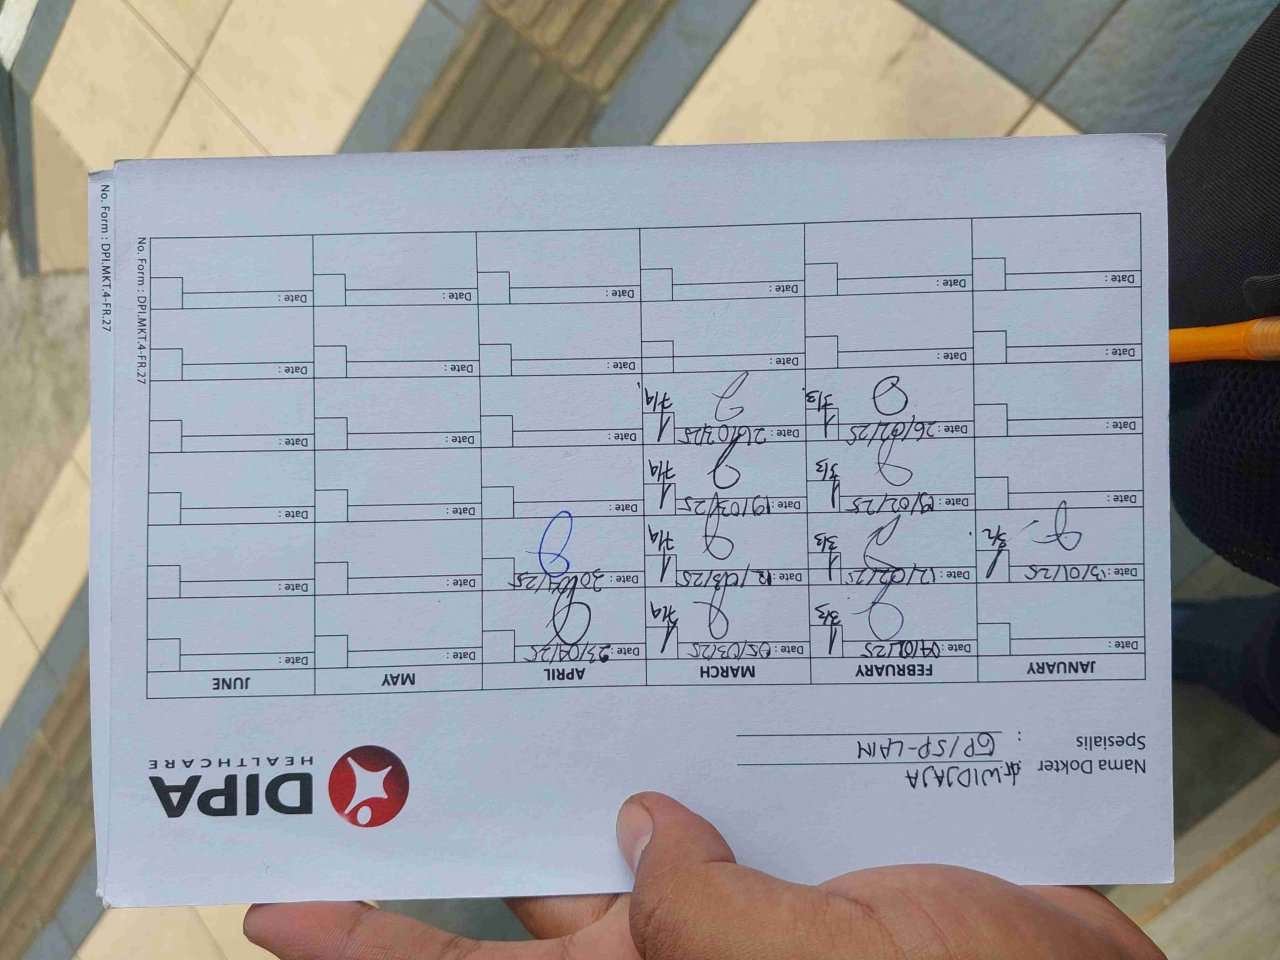 DIPA
HEALTHCARE
Nama Dokter : dr WIDJAJA
Spesialis : GP/SP-LAIN
JANUARY FEBRUARY MARCH APRIL MAY JUNE
Date: Date: 04/02/25 3/3 Date: 05/03/25 7/4 Date: 23/04/25 Date: Date:
Date: 13/01/25 3/2 Date: 12/02/25 3/3 Date: 12/03/25 7/4 Date: 30/04/25 Date: Date:
Date: Date: 19/02/25 3/3 Date: 19/03/25 7/4 Date: Date: Date:
Date: Date: 26/02/25 3/3 Date: 26/03/25 7/4 Date: Date: Date:
Date: Date: Date: Date: Date: Date:
Date: Date: Date: Date: Date: Date:
No. Form : DPI.MKT.4-FR.27
No. Form : DPI.MKT.4-FR.27